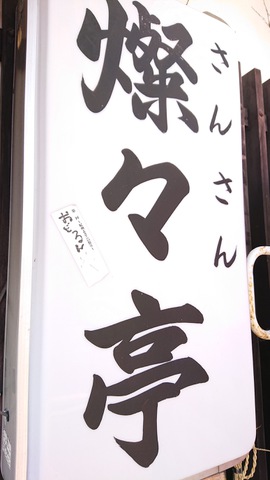 さんさん
燦々亭